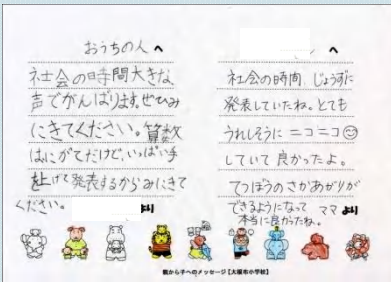 おうちの人へ
社会の時間大きな
声でがんばります。ぜひみ
にきてください。算数
はにがてだけど、いっぱい手
を上げて発表するからみにきて
ください。
より
へ
社会の時間、じょうずに
発表していたね。とても
うれしそうに ニコニコ☺
していて 良かったよ。
てつぼうのさかあがりが
できるようになって
本当に良かったね。
ママ より
親から子へのメッセージ【大阪市小学校】